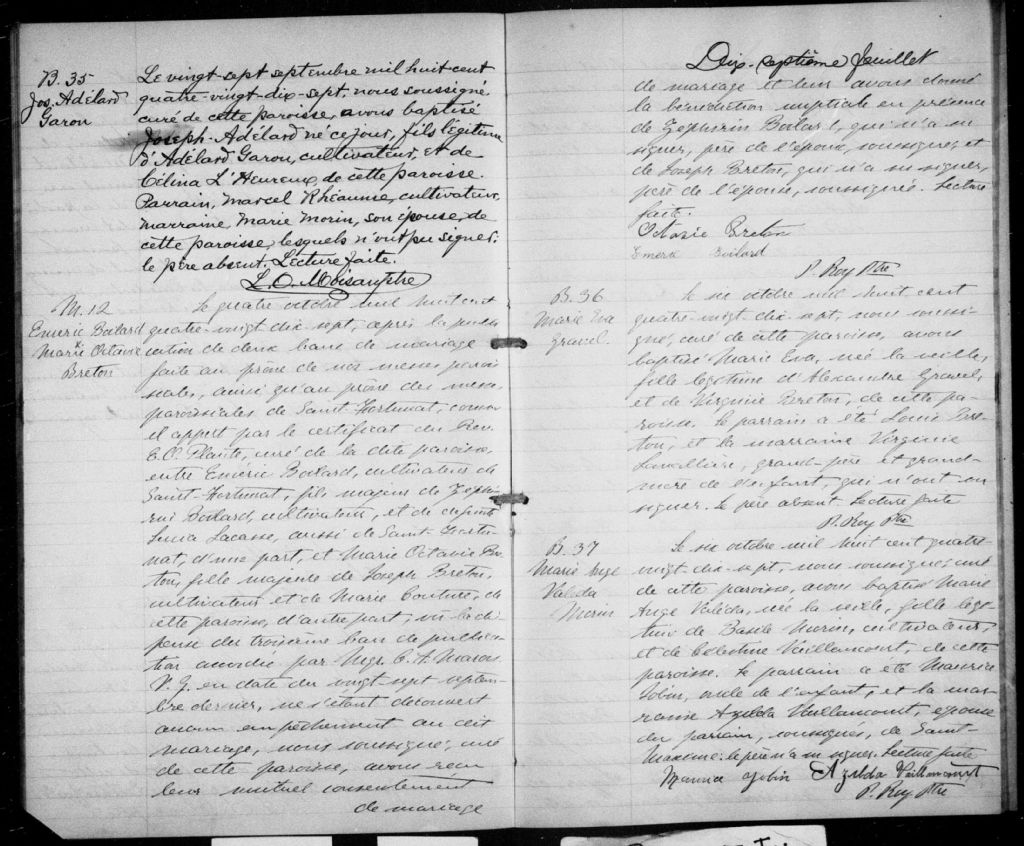 B. 35
Jos. Adélard
Garon
Le vingt-sept septembre mil huit cent
quatre-vingt-dix-sept, nous soussigné
curé de cette paroisse, avons baptisé
Joseph-Adélard né ce jour, fils légitime
d'Adélard Garon, cultivateur, et de
Célina L'Heureux, de cette paroisse.
Parrain, Marcel Rhéaume, cultivateur,
marraine, Marie Morin, son épouse, de
cette paroisse, lesquels n'ont pu signer;
le père absent. Lecture faite.
L. O. Moisan, ptre
M. 12
Emeric Boilard
&
Marie Octavie
Breton
Le quatre octobre mil huit cent
quatre-vingt dix-sept, après la publi
cation de deux bans de mariage
faite au prône de nos messes parois
siales, ainsi qu'au prône des messes
paroissiales de Saint-Fortunat, comme
il appert par le certificat du Rev.
E. O. Plante, curé de la dite paroisse,
entre Emeric Boilard, cultivateur de
Saint-Fortunat, fils majeur de Zéphi
rin Boilard, cultivateur, et de défunte
Lucia Lacasse, aussi de Saint-Fortu
nat, d'une part, et Marie Octavie Bre
ton, fille majeure de Joseph Breton,
cultivateur et de Marie Couture, de
cette paroisse, d'autre part; vu la dis
pense du troisième ban de publica
tion accordée par Mgr. C. A. Marois
V. G. en date du vingt-sept septem
bre dernier, ne s'étant découvert
aucun empêchement au dit
mariage, nous soussigné, curé
de cette paroisse, avons reçu
leur mutuel consentement
de mariage
Dix-septième feuillet
de mariage et leur avons donné
la bénédiction nuptiale en présence
de Zéphirin Boilard, qui n'a su
signer, père de l'époux, soussigné, et
de Joseph Breton, qui n'a su signer,
père de l'épouse, soussignés. Lecture
faite.
Octavie Breton
Emera Boilard
P. Roy Ptre
B. 36
Marie Eva
Gravel.
Le six octobre mil huit cent
quatre-vingt dix-sept, nous soussi
gné, curé de cette paroisse, avons
baptisé Marie Eva, née la veille,
fille légitime d'Alexandre Gravel,
et de Virginie Breton, de cette pa-
roisse. Le parrain a été Louis Bre
ton, et la marraine Virginie
grand-père et grand-
mère de l'enfant, qui n'ont su
signer. Le père absent. Lecture faite
P. Roy Ptre
B. 37
Marie Ange
Valéda
Morin
Le six octobre mil huit cent quatre-
vingt dix-sept, nous soussigné, curé
de cette paroisse, avons baptisé Marie
Ange Valéda, née la veille, fille légi
time de Basile Morin, cultivateur,
et de Célestine Vaillancourt, de cette
paroisse. Le parrain a été Maurice
Jobin, oncle de l'enfant, et la mar
raine Azilda Vaillancourt, épouse
du parrain, soussignés, de Saint-
Maxime: le père n'a su signer. Lecture faite
Jobin Azilda Vaillancourt
P. Roy Ptre